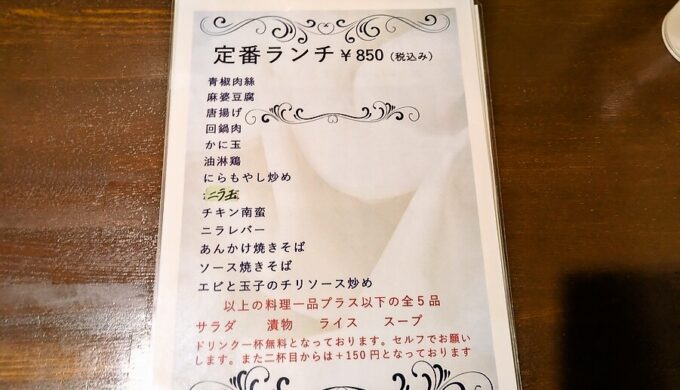 定番ランチ ¥850（税込み）
青椒肉絲
麻婆豆腐
唐揚げ
回鍋肉
かに玉
油淋鶏
にらもやし炒め
ニラ玉
チキン南蛮
ニラレバー
あんかけ焼きそば
ソース焼きそば
エビと玉子のチリソース炒め
以上の料理一品プラス以下の全５品
サラダ 漬物 ライス スープ
ドリンク一杯無料となっております。セルフでお願い
します。また二杯目からは＋150円となっております